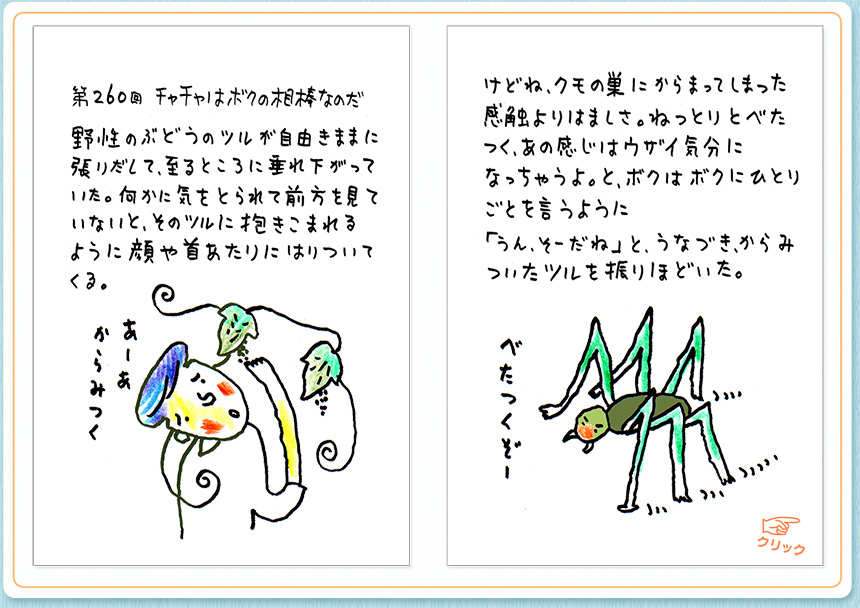 第260回 チャチャはボクの相棒なのだ
野性のぶどうのツルが自由きままに
張りだして、至るところに垂れ下がって
いた。何かに気をとられて前方を見て
いないと、そのツルに抱きこまれる
ように顔や首あたりにはりついて
くる。
あーあ
からみつく
けどね、クモの巣にからまってしまった
感触よりはましさ。ねっとりとべた
つく、あの感じはウザイ気分に
なっちゃうよ。と、ボクはボクにひとり
ごとを言うように
「うん、そーだね」と、うなづき、からみ
ついたツルを振りほどいた。
べたつくぞー
クリック